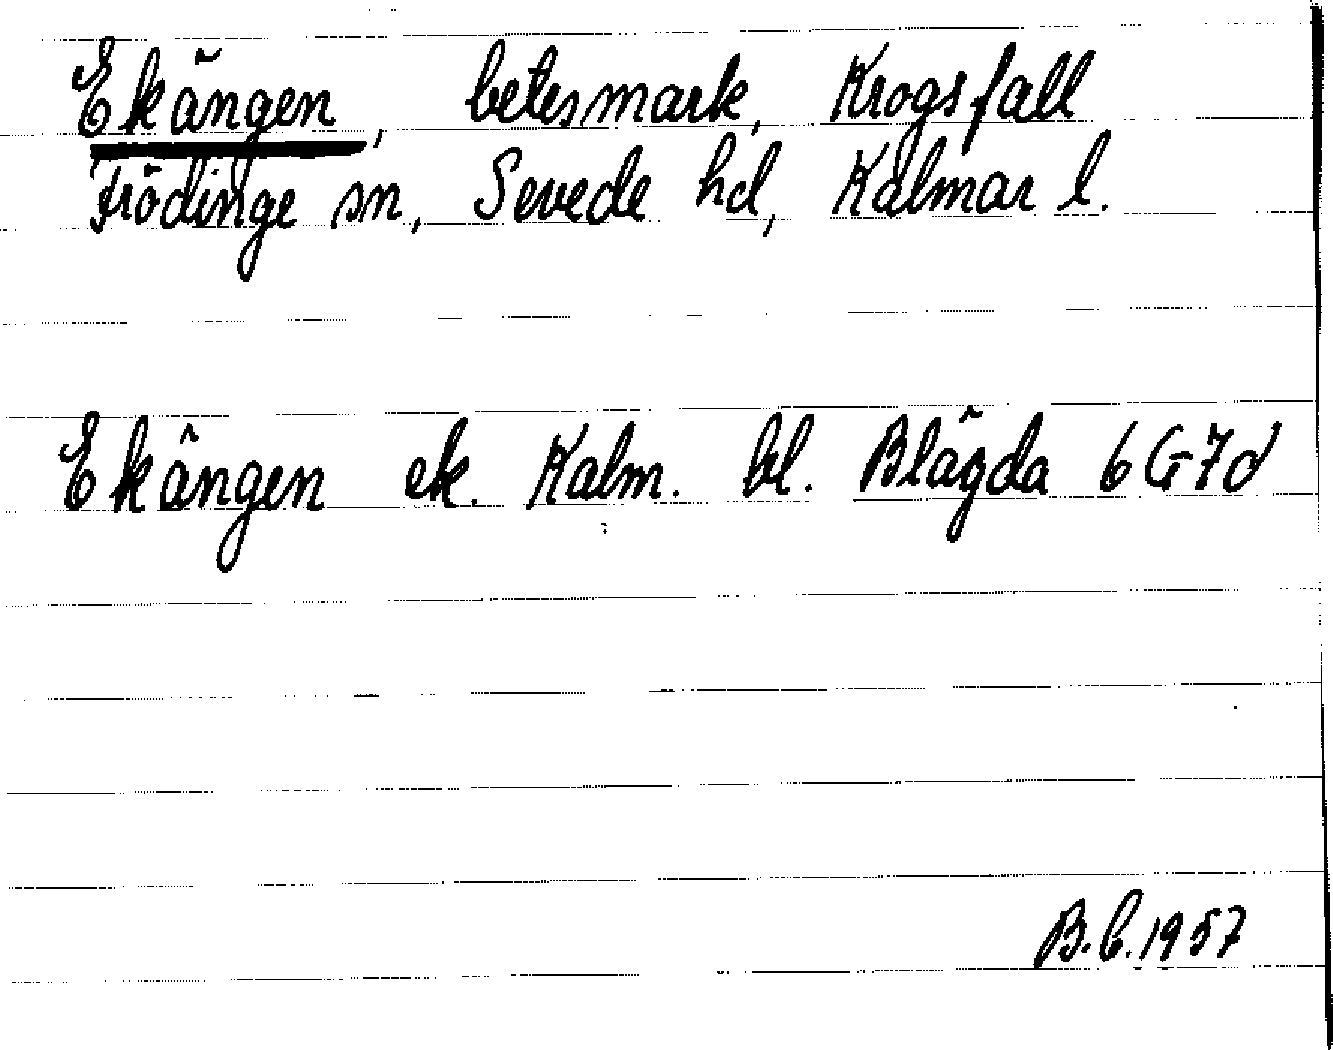 Ekängen, betesmark, Krogsfall
Frödinge sn, Sevede hd, Kalmar l.
Ekängen ek. Kalm. bl. Blägda 6G7d
B.C.1957